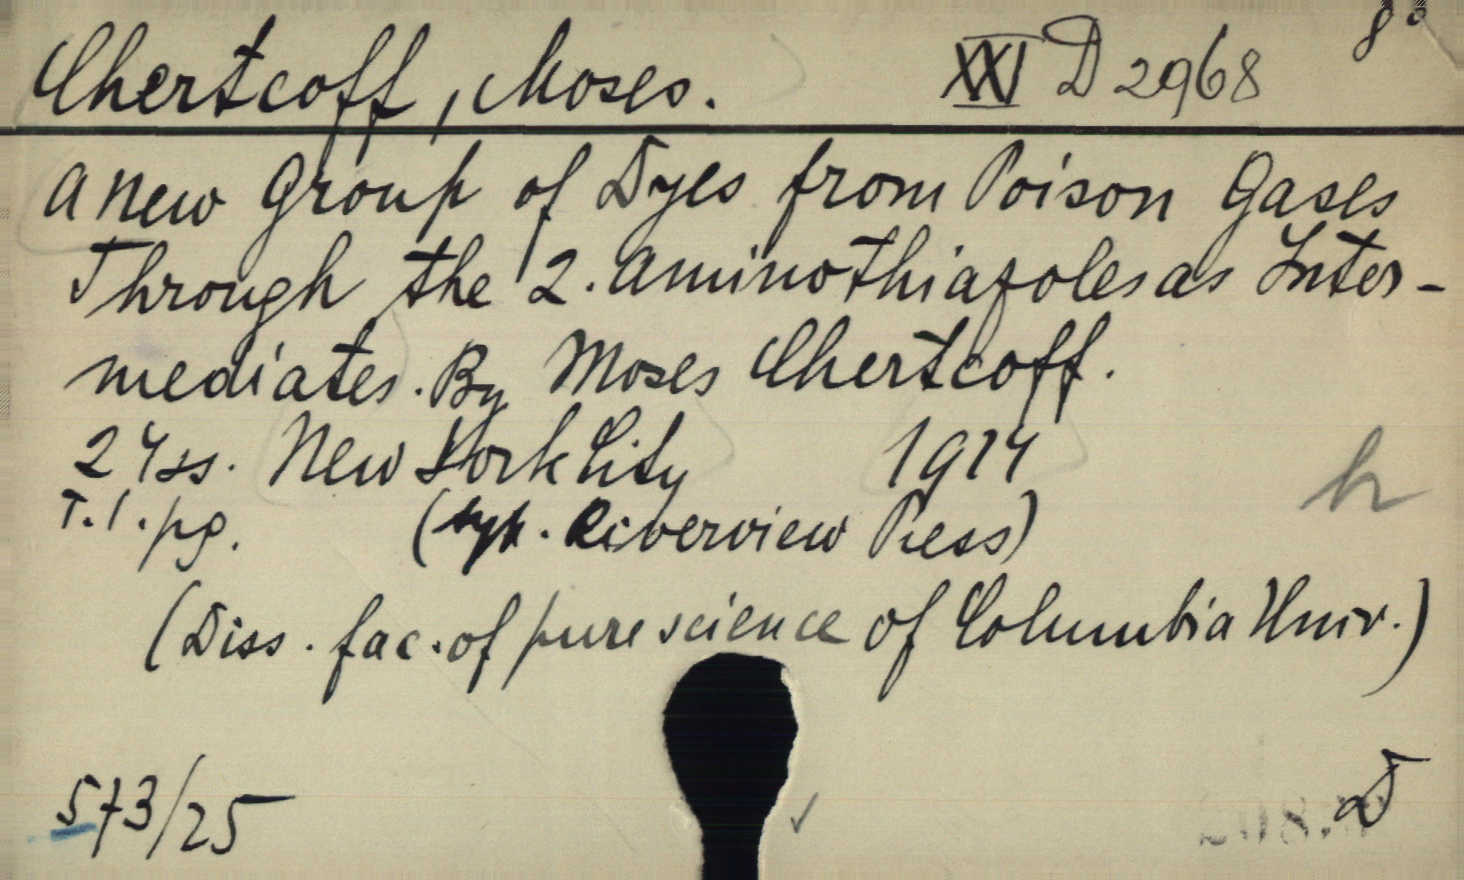 Chertcoff, Moses. XXI D 2968 8°
A new Group of Dyes from Poison Gases
Through the 2. Aminothiazoles as Inter-
mediates. By Moses Chertcoff.
24 ss. New York City 1924
T. l. pg. (typ. Riverview Press)
h
(Diss. fac. of pure science of Columbia Univ.)
573/25 D